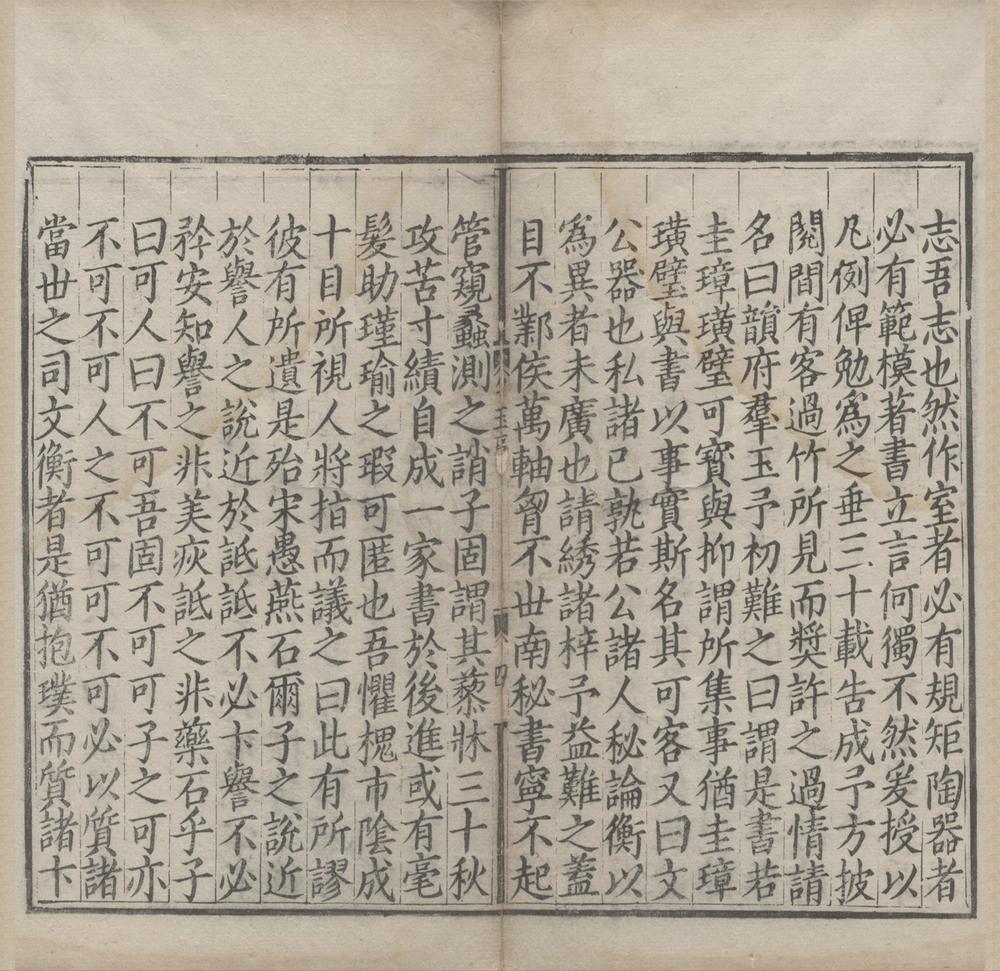 志吾志也然作室者必有規矩陶器者
必有範模著書立言何獨不然爰授以
凡例俾勉爲之垂三十載告成予方披
閱間有客過竹所見而奬許之過情請
名曰韻府羣玉予初難之曰謂是書若
圭璋璜璧可寳與抑謂所集事猶圭璋
璜璧與書以事實斯名其可客又曰文
公器也私諸已孰若公諸人秘論衡以
爲異者未廣也請綉諸梓予益難之蓋
目不鄴侯萬軸胷不世南秘書寧不起
四
管窺蠡測之誚子固謂其藜牀三十秋
攻苦寸績自成一家書於後進或有毫
髮助瑾瑜之瑕可匿也吾懼槐市隂成
十目所視人將指而議之曰此有所謬
彼有所遺是殆宋愚燕石爾子之說近
於譽人之說近於詆詆不必卞譽不必
矜安知譽之非美疢詆之非藥石乎子
曰可人曰不可吾固不可可子之可亦
不可不可人之不可可不可必以質諸
當世之司文衡者是猶抱璞而質諸卞